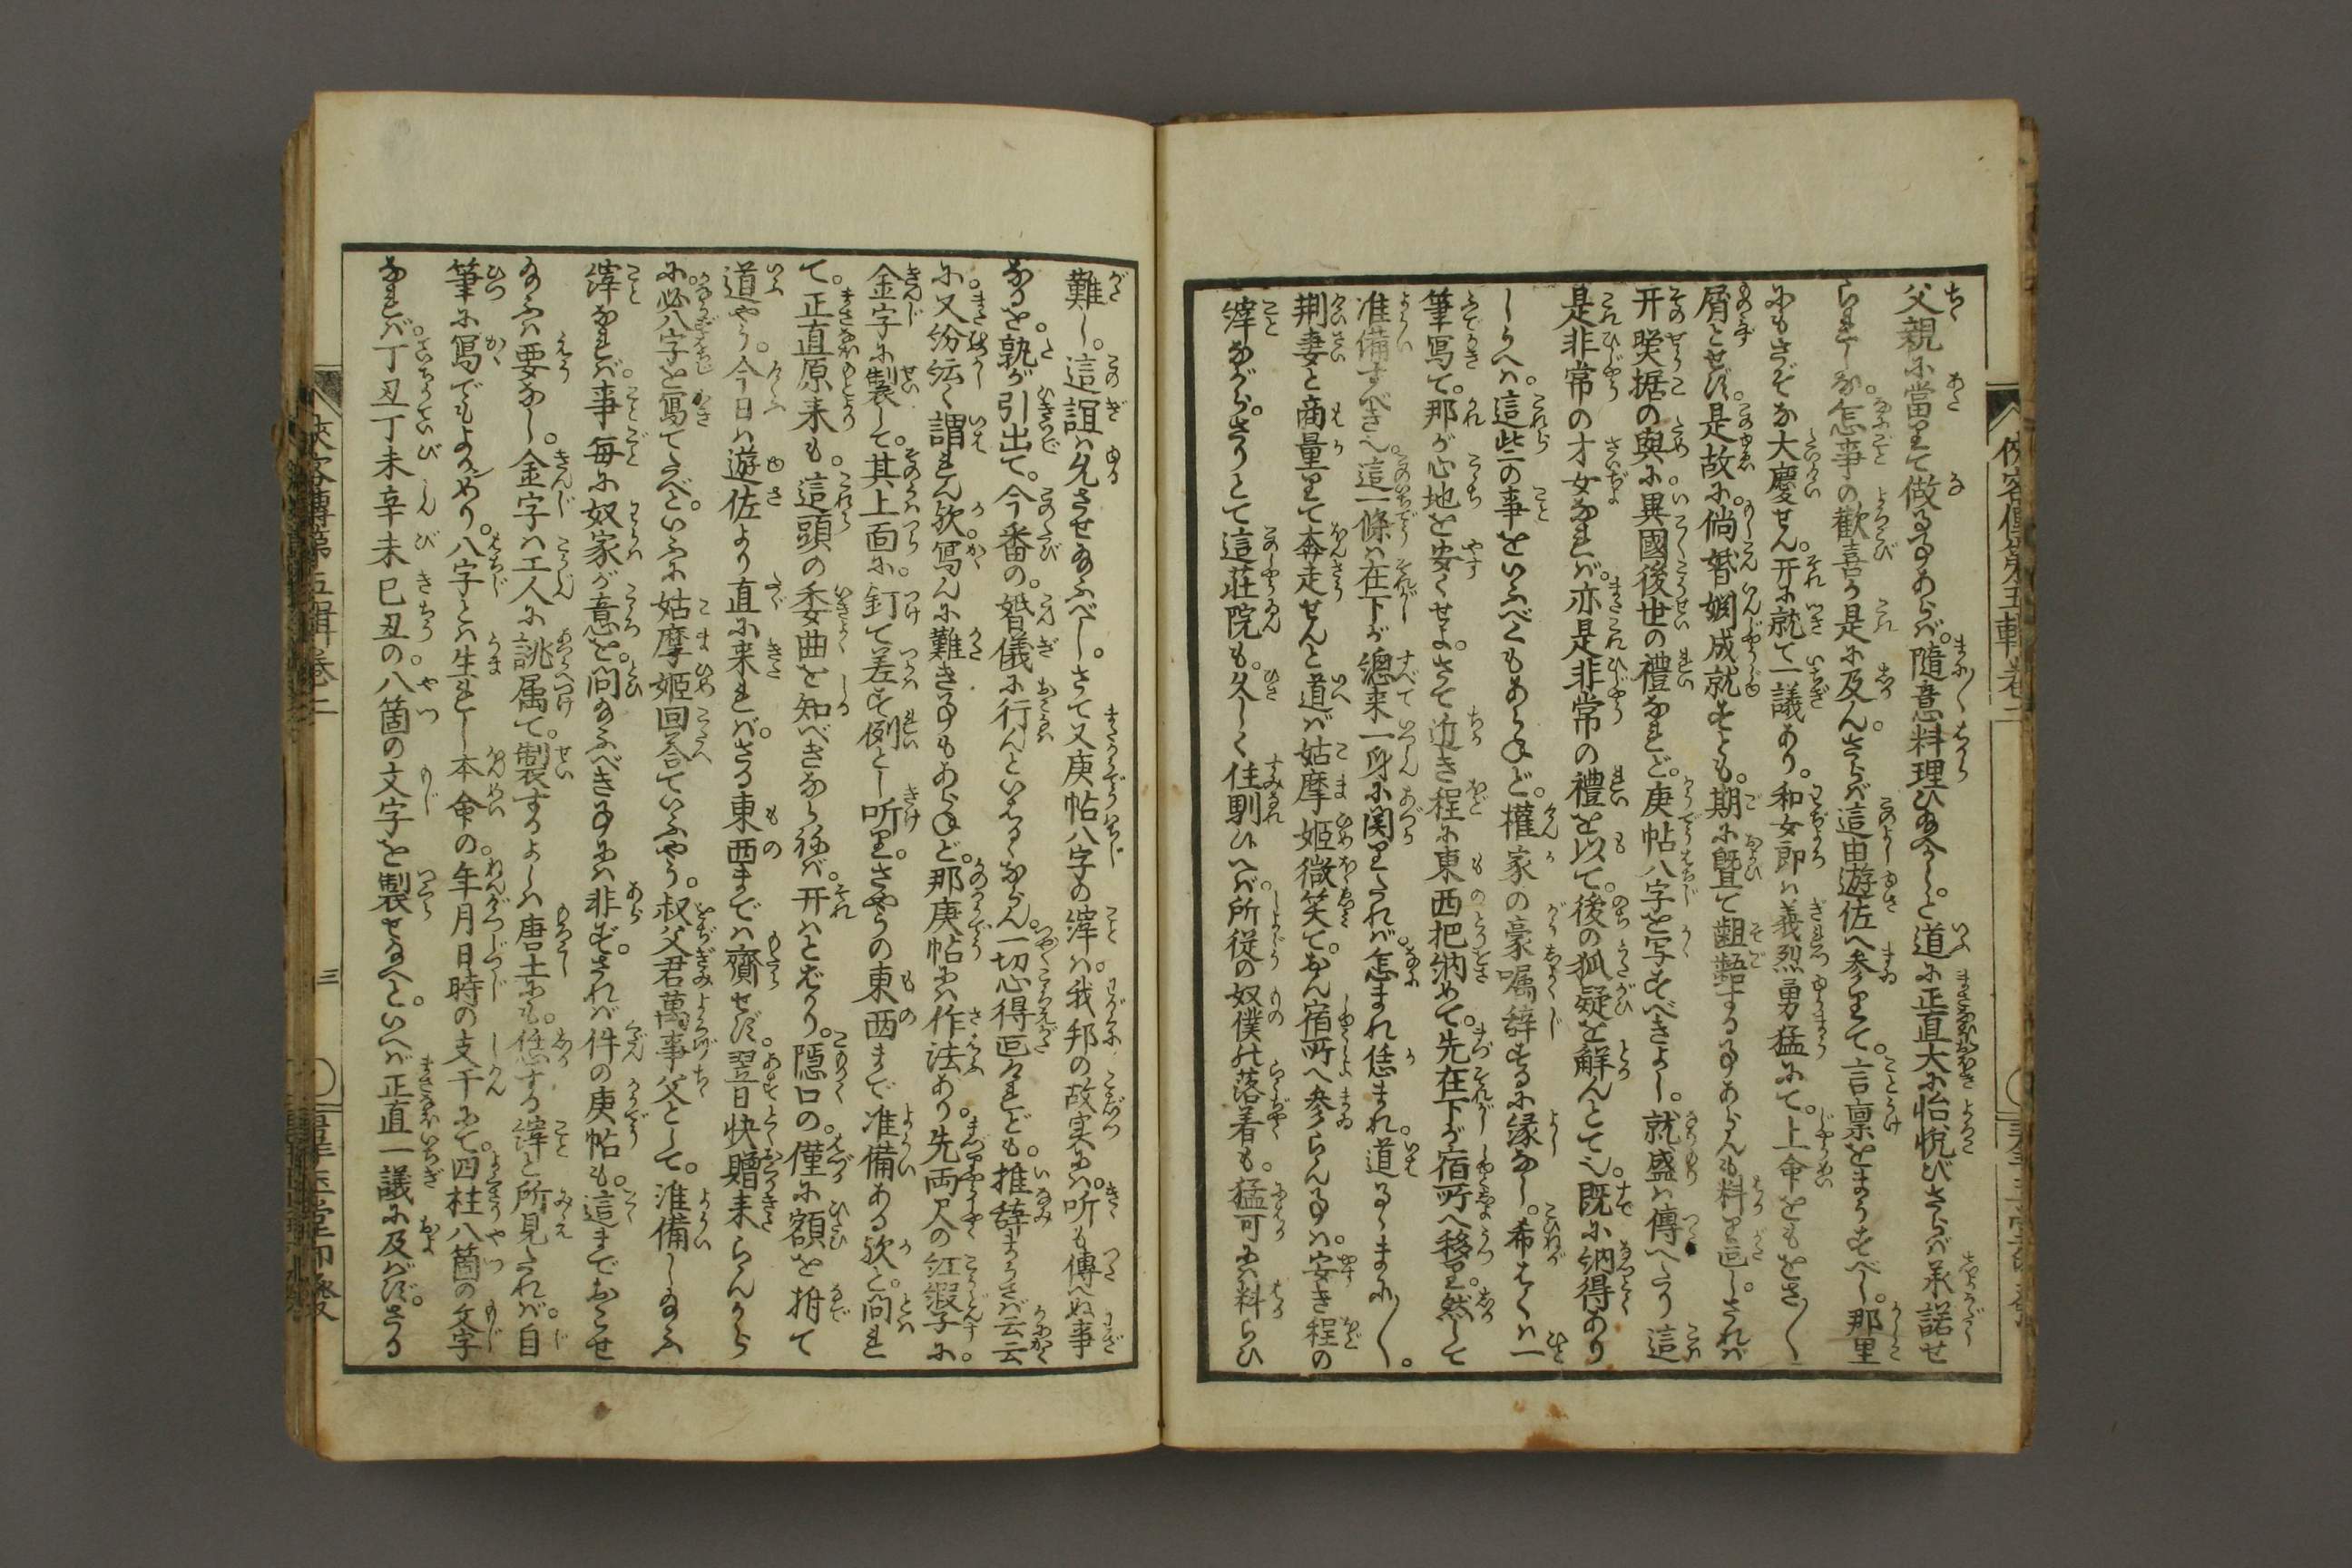 父親に當りて做る事あらば。隨意料理ひ給へかし。と道に正直大に怡悦びさらば承諾せ
られしな。怎事の歡喜か是に及ん。さらば這由遊佐へ参りて。言禀をまうすべし。那里
にもさぞな大慶せん。开に就て一議あり。和女郎は義烈勇猛にて。上命をもをさ〳〵
屑とせず。是故に。倘婚姻成就すとも。期に曁て齟齬する事あらんも料り叵し。されば
开照据の與に異國後世の禮なれど。庚帖八字を写すべきよし。就盛は傳へたり這
是非常の才女なれば。亦是非常の禮を以て。後の狐疑を解んとて也。既に納得あり
しうへは。這些の事をいふべくもあらねど。權家の豪嘱辞するに縁なし。希くは一
筆寫て。那が心地を安くせよ。さて近き程に東西把納めて。先在下が宿所へ移り。然して
准備すべき也。這一條は在下が總来一身に関りたれば。怎まれ恁まれ。道るゝまに〳〵。
荆妻と商量りて奔走せんと道ば姑摩姫微笑て。おん宿所へ参らん事は。安き程の
縡ながら。さりとて這荘院も。久しく住馴ひへば所從の奴僕の落着も。猛可には料らひ
難し。這誼は允させ給ふべし。さて又庚帖八字の縡は。我邦の故実には。听も傳へぬ事
なるを。孰が引出て。今番の。婚儀に行んといはるゝならん。一切心得叵けれども。推辞まうさば云云
に。又紛紜く謂れん欤。寫んに難き事もあらねど。那庚帖には作法あり。先両尺の紅緞子に。
金字に製して。其上面に。釘て差す例とし听り。さやうの東西まで准備ある欤と。問れ
て。正直原来も。這頭の委曲を知べきならねば。开はとばかり。隱口の。僅に額を拊て
道やう。今日は遊佐より直に来れば。さる東西までは齎せず。翌日快贈来らんから
に。必八字を寫てたべ。といふに姑摩姫回荅ていふやう。叔父君萬事父として。准備し給ふ
縡なれば。事毎に奴家が意を。問給ふべき事には非ず。されば件の庚帖も。這までおこせ
給ふは要なし。金字は工人に誂属て。製するよしは唐土にも。恁する縡と所見たれば。自
筆に寫でもよかめり。八字とは生れし本命の。年月日時の支干にて。四柱八箇の文字
なれば。丁丑丁未辛未己丑の。八箇の文字を製せ給へと。いへば正直一議に及ばず。さる
俠客傳第五輯卷二
三